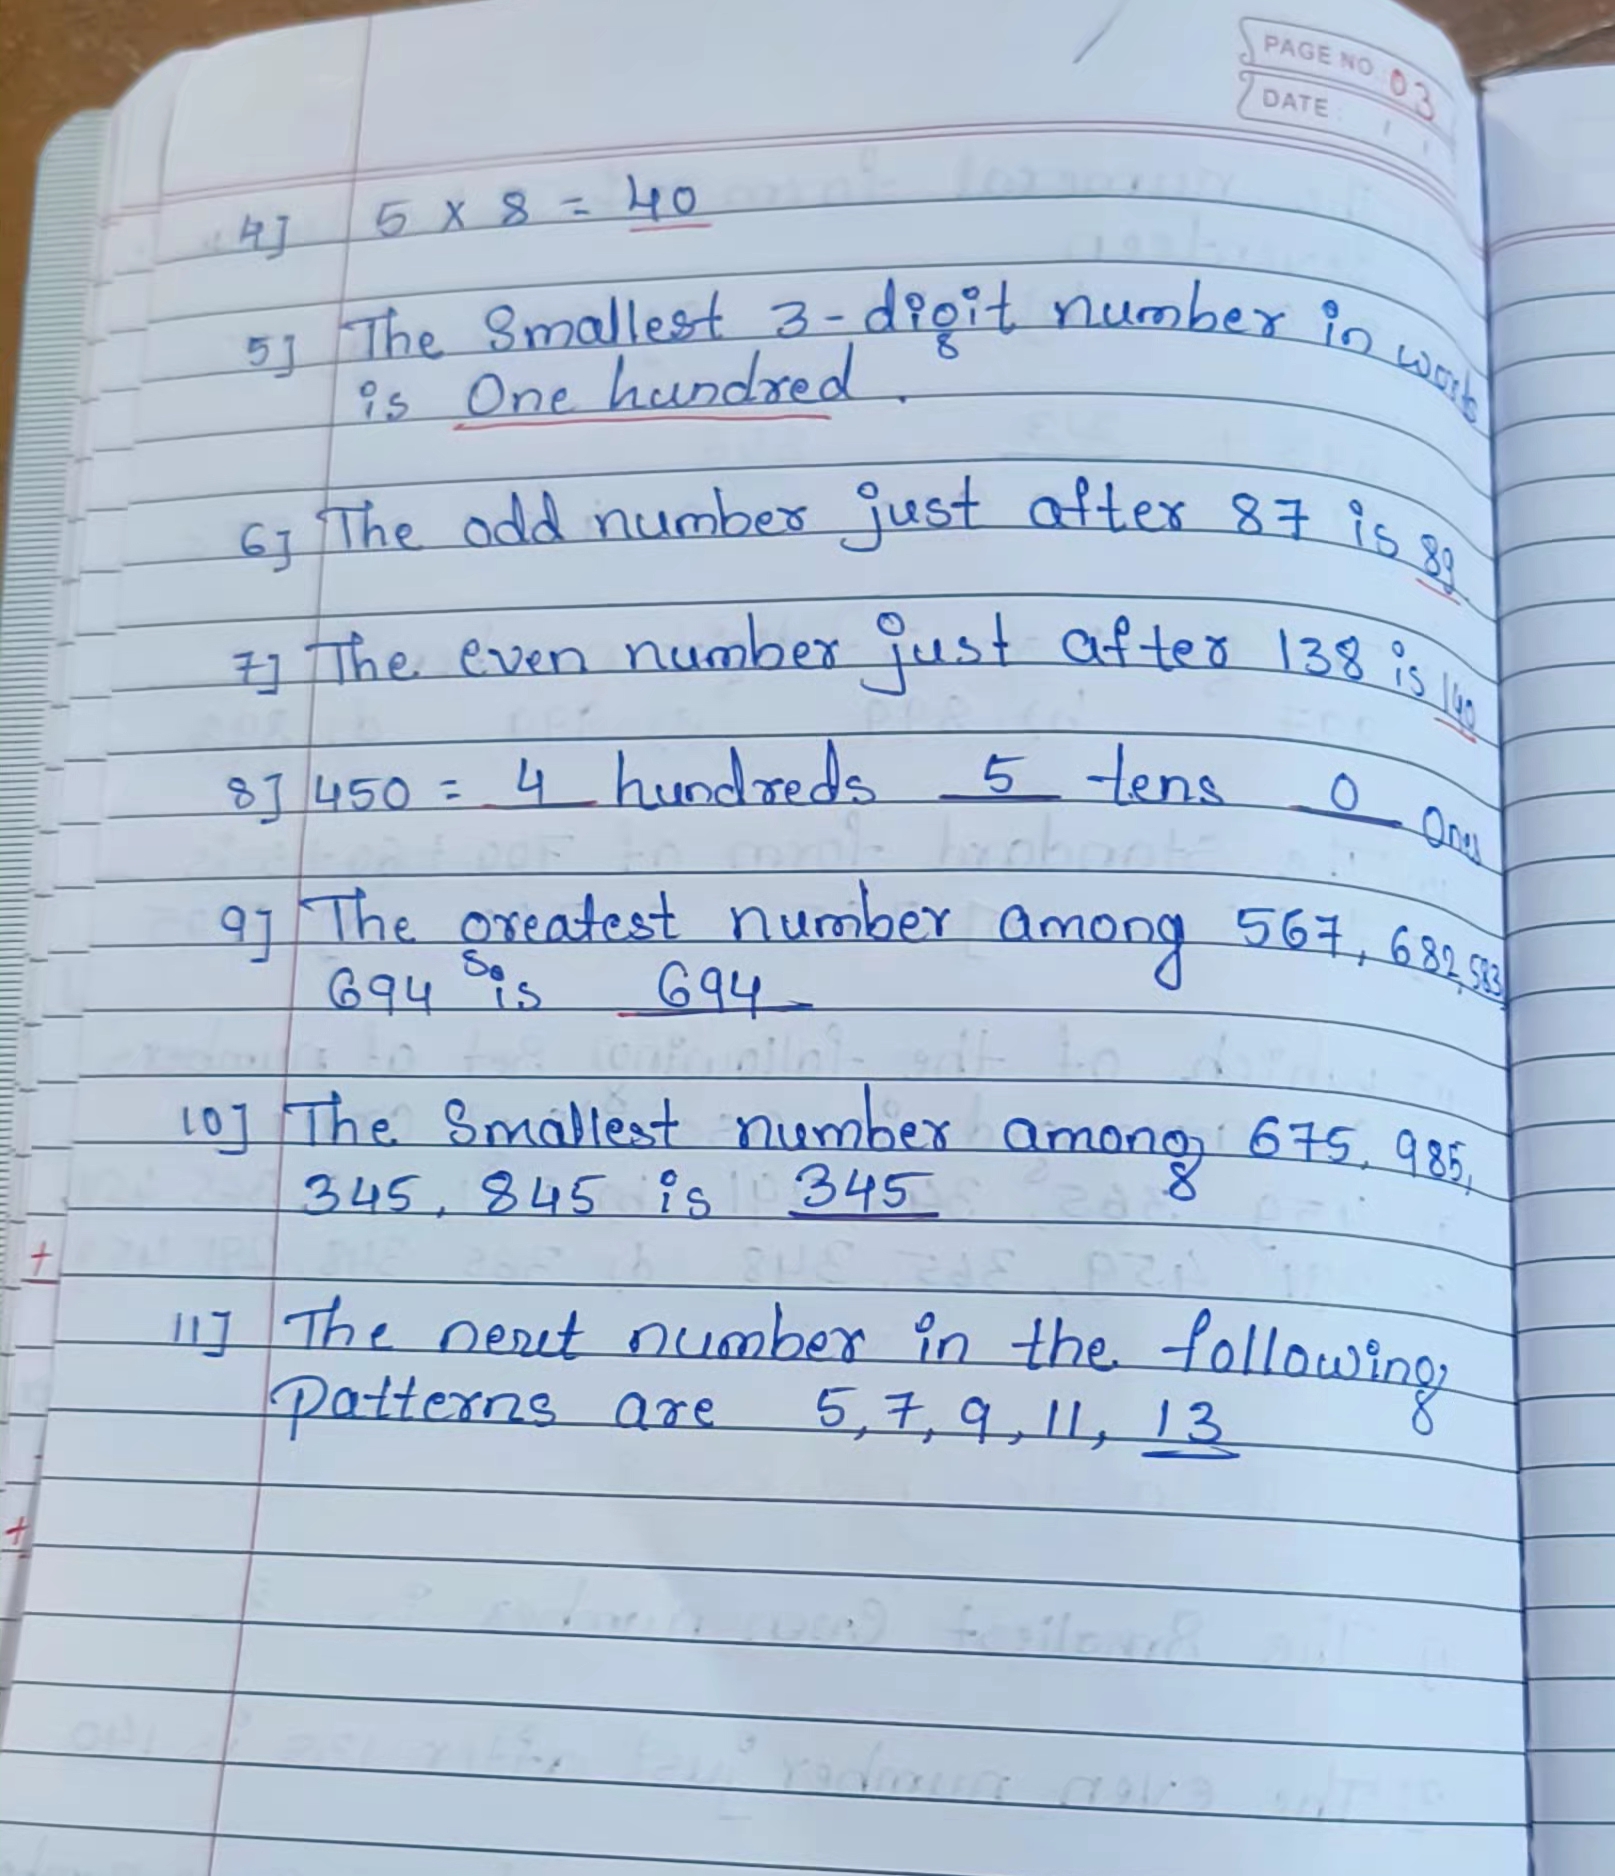 PAGE NO. 03
DATE
4] 5 x 8 = 40
5] The Smallest 3-digit number in words
is One hundred.
6] The odd number just after 87 is 89
7] The even number just after 138 is 140
8] 450 = 4 hundreds 5 tens 0 Ones
9] The greatest number among 567, 682, 583,
694 is 694
10] The Smallest number among 675, 985,
345, 845 is 345
11] The next number in the following
patterns are 5, 7, 9, 11, 13